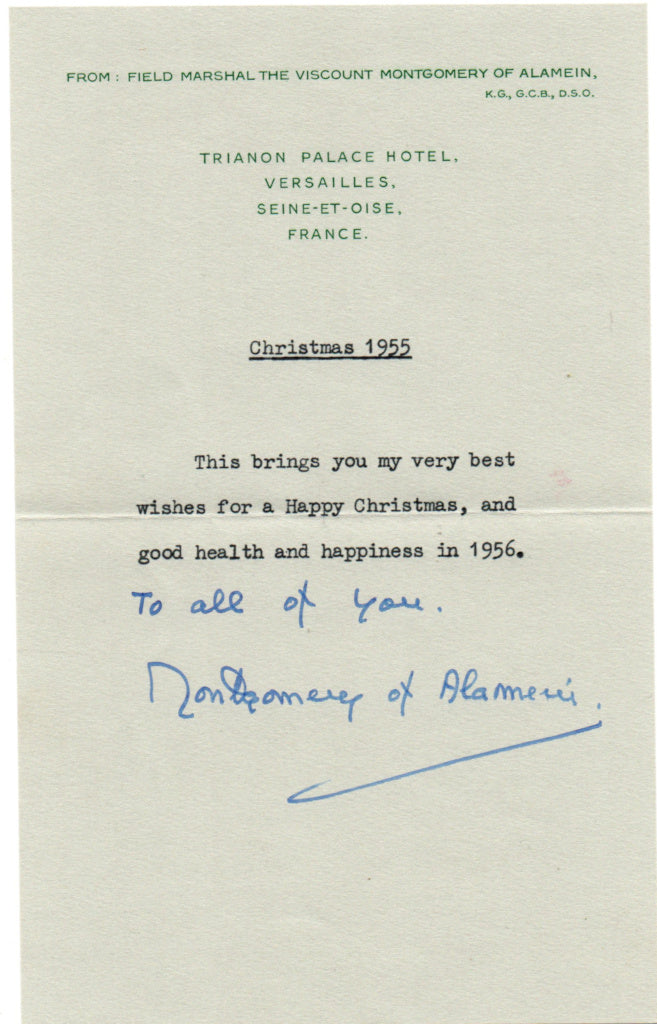 FROM : FIELD MARSHAL THE VISCOUNT MONTGOMERY OF ALAMEIN,
K.G., G.C.B., D.S.O.
TRIANON PALACE HOTEL,
VERSAILLES,
SEINE-ET-OISE,
FRANCE.
Christmas 1955
This brings you my very best
wishes for a Happy Christmas, and
good health and happiness in 1956.
To all of you.
Montgomery of Alamein.